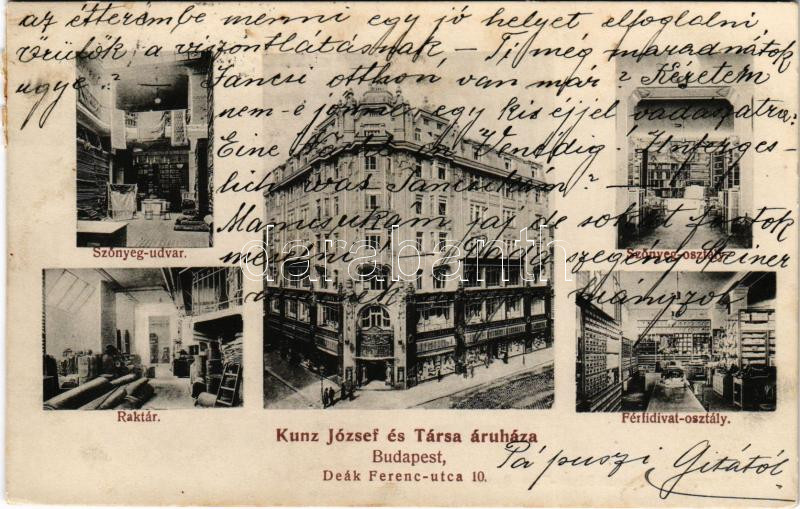 az étterembe menni egy jó helyet elfoglalni
örülök a viszontlátásnak – Ti még maradnátok
ugye? Jancsi otthon van már? Kéretem
nem-e jönne egy kis éjjel vadászatra?
Eine in Venedig!
lich was
Mamcsukám jaj de sokat fogok
mesélni! – szegény Reiner
hiányzok
Szőnyeg-udvar.
Szőnyeg-osztály.
Raktár.
Férfidivat-osztály.
darabanth
Kunz József és Társa áruháza
Budapest,
Deák Ferenc-utca 10.
Pá puszi Gitától